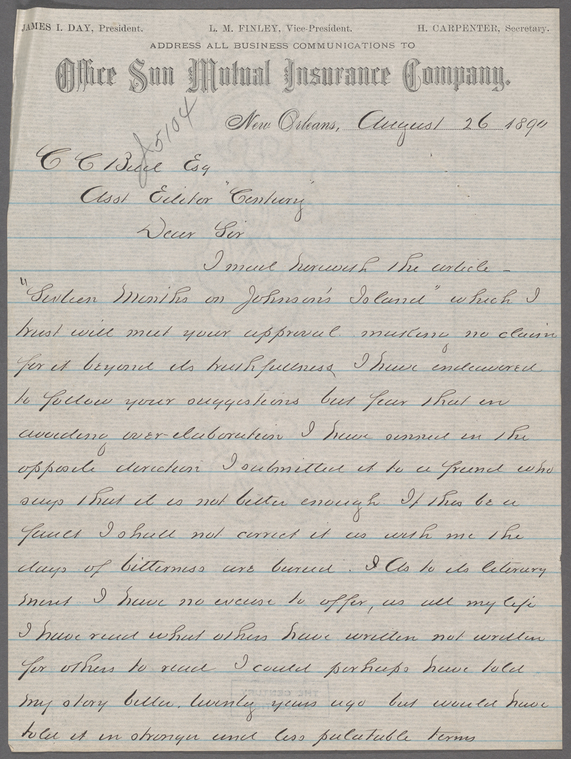 JAMES I. DAY, President. L. M. FINLEY, Vice-President. H. CARPENTER, Secretary.
ADDRESS ALL BUSINESS COMMUNICATIONS TO
Office Sun Mutual Insurance Company.
New Orleans, August 26 1890
5104
C C Buel Esq
Asst Editor "Century"
Dear Sir
I mail herewith the article –
"Sixteen Months on Johnson's Island" which I
trust will meet your approval. making no claim
for it beyond its truthfullness I have endeavored
to follow your suggestions but fear that in
avoiding over-elaboration I have sinned in the
opposite direction I submitted it to a friend who
says that it is not bitter enough If this be a
fault I shall not correct it as with me the
days of bitterness are buried. As to its literary
merit I have no excuse to offer, as all my life
I have read what others have written not written
for others to read I could perhaps have told
my story better, twenty years ago but would have
told it in stronger and less palatable terms